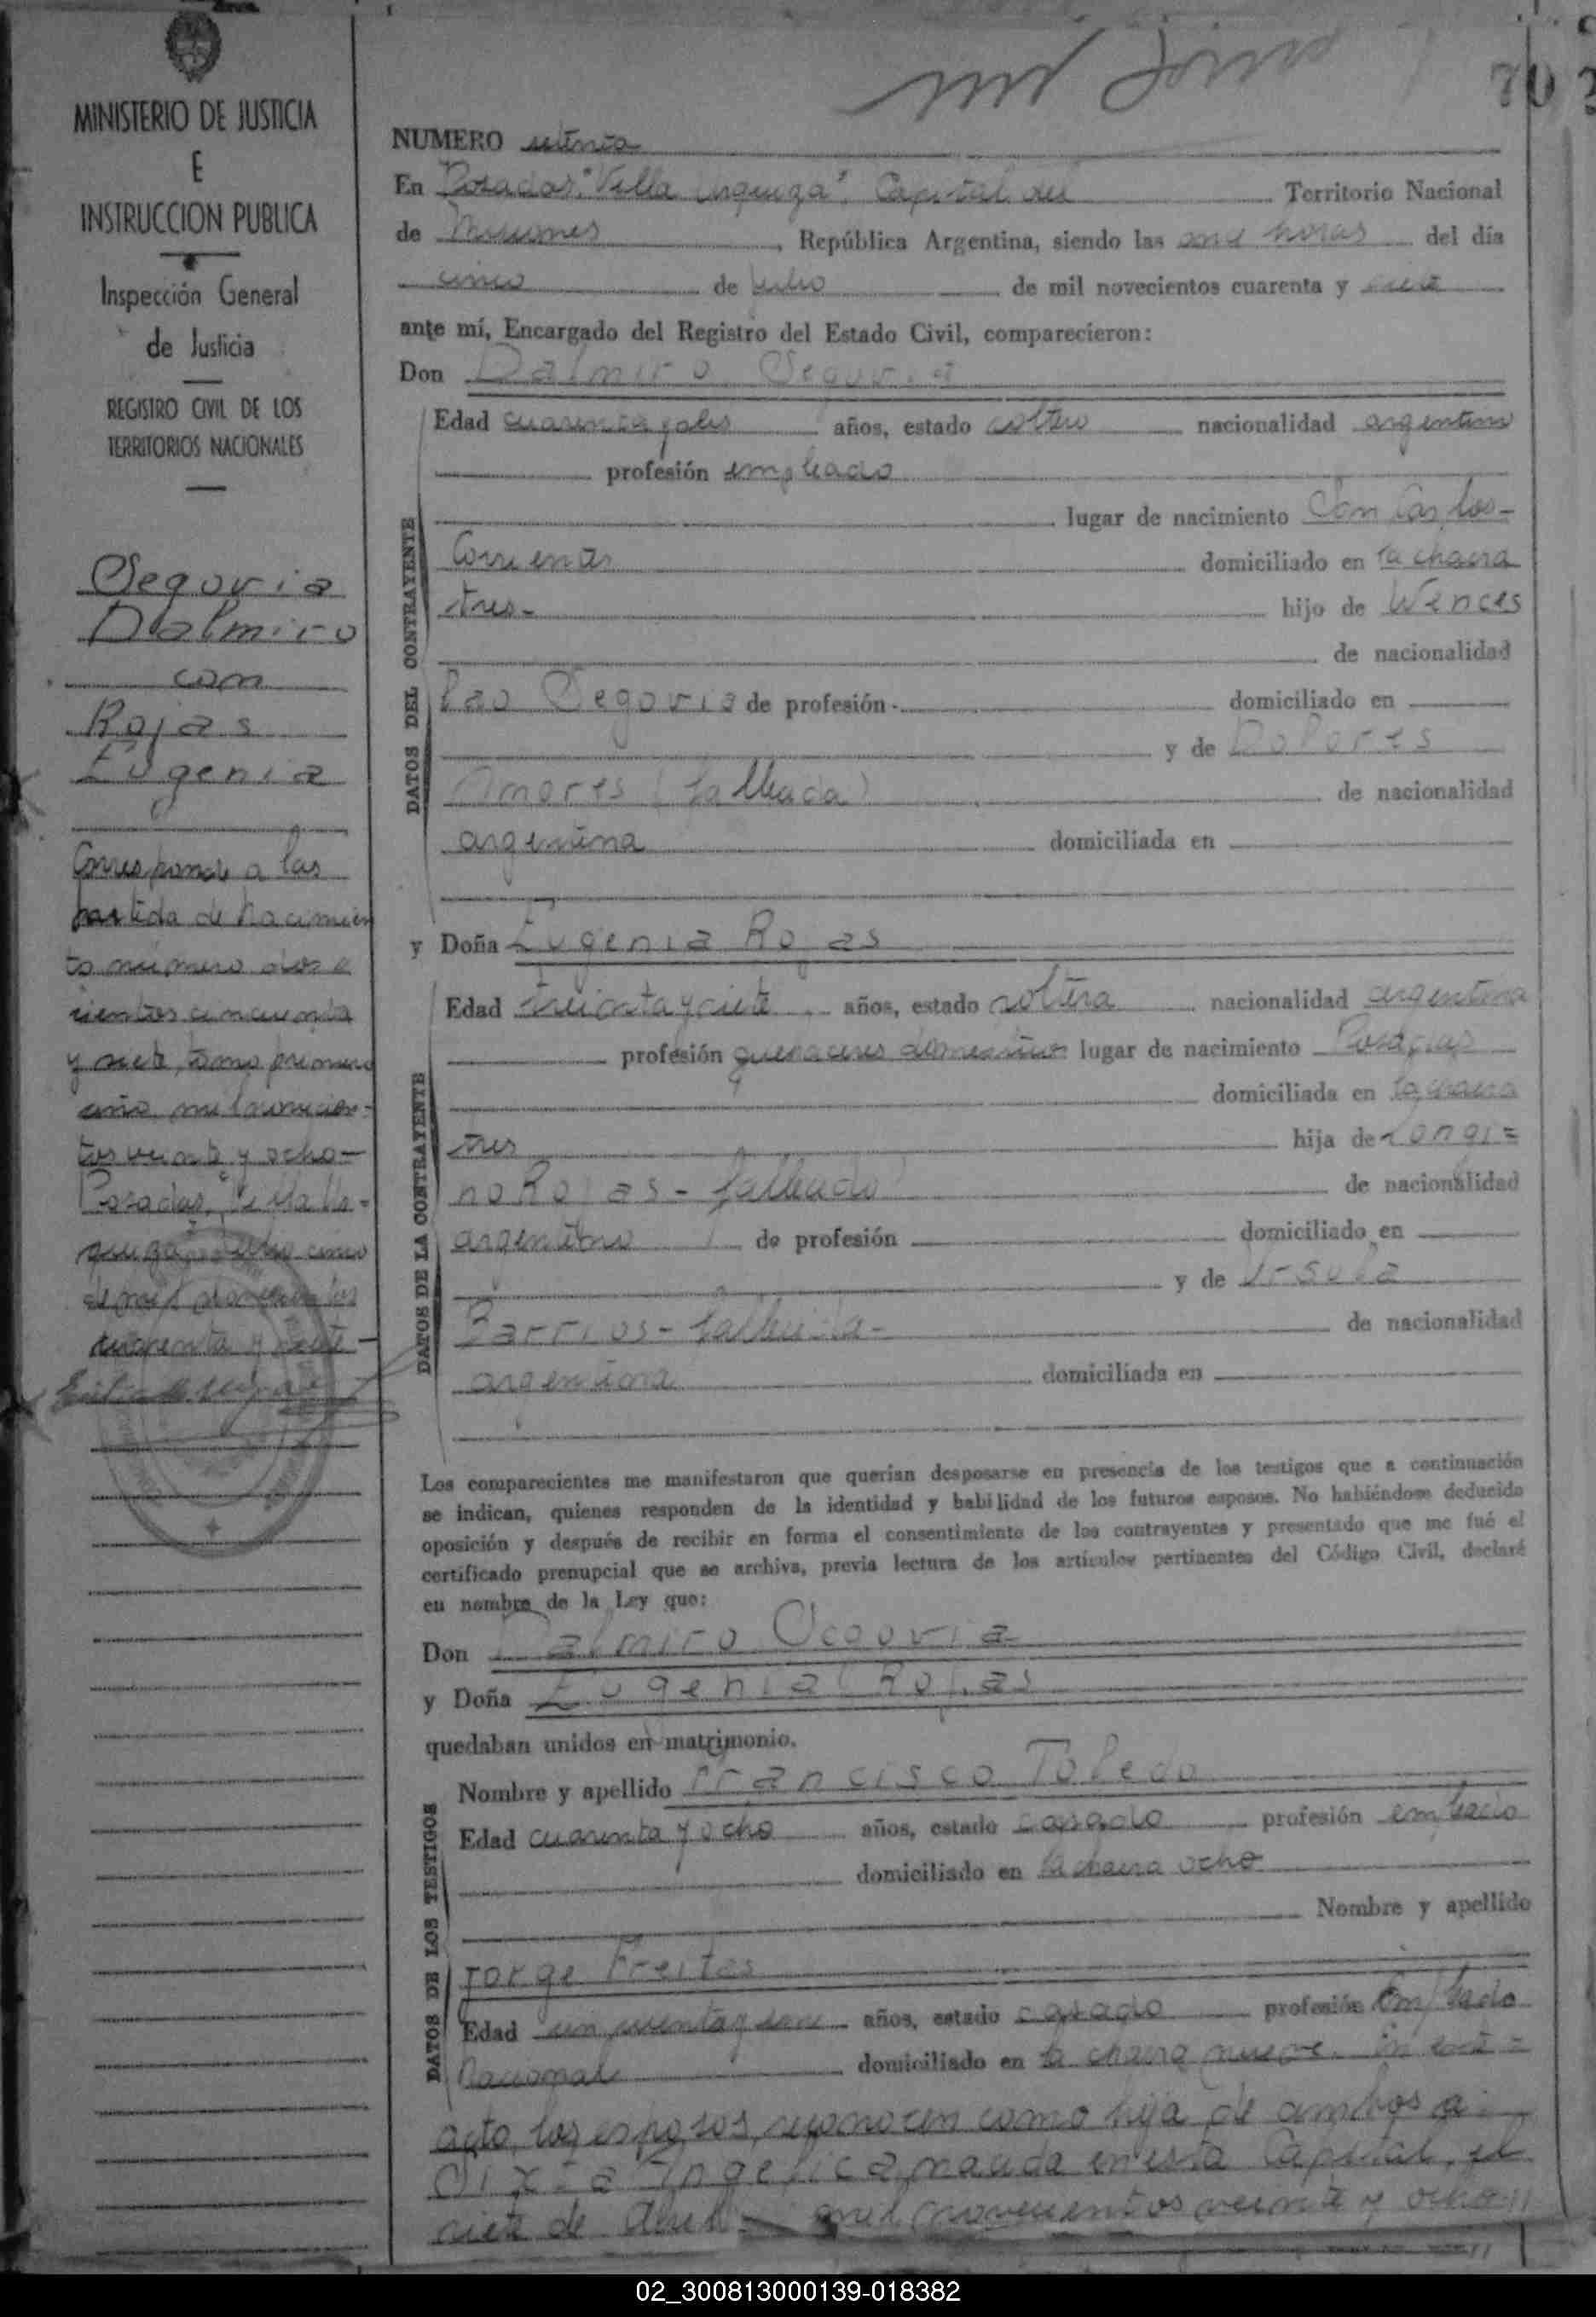 70
MINISTERIO DE JUSTICIA
E
INSTRUCCION PUBLICA
Inspección General
de Justicia
REGISTRO CIVIL DE LOS
TERRITORIOS NACIONALES
Segovia
Dalmiro
con
Rojas
Eugenia
Corresponde a las
partida de Nacimien
to número dos
cientos cincuenta
y siete, tomo primero
año mil novecien-
tos veinte y ocho-
Posadas, "Villa Ur-
quiza", Julio cinco
de mil novecientos
cuarenta y siete-
NUMERO setenta
En Posadas. "Villa Urquiza". Capital del Territorio Nacional
de Misiones, República Argentina, siendo las once horas del día
cinco de Julio de mil novecientos cuarenta y siete
ante mí, Encargado del Registro del Estado Civil, comparecieron:
Don Dalmiro Segovia
DATOS DEL CONTRAYENTE
Edad cuarenta y años, estado soltero nacionalidad argentino
profesión empleado
lugar de nacimiento San Carlos-
Corrientes domiciliado en la chacra
tres- hijo de Wences
de nacionalidad
lao Segovia de profesión domiciliado en
y de Dolores
Amores (fallecida) de nacionalidad
argentina domiciliada en
y Doña Eugenia Rojas
DATOS DE LA CONTRAYENTE
Edad treinta y siete años, estado soltera nacionalidad argentina
profesión quehaceres domesticos lugar de nacimiento Posadas
domiciliada en la chacra
tres hija de Longi=
no Rojas - fallecido de nacionalidad
argentino de profesión domiciliado en
y de Ursula
Barrios - fallecida- de nacionalidad
argentina domiciliada en
Los comparecientes me manifestaron que querían desposarse en presencia de los testigos que a continuación
se indican, quienes responden de la identidad y habilidad de los futuros esposos. No habiéndose deducido
oposición y después de recibir en forma el consentimiento de los contrayentes y presentado que me fué el
certificado prenupcial que se archiva, previa lectura de los artículos pertinentes del Código Civil, declaré
en nombre de la Ley que:
Don Dalmiro Segovia
y Doña Eugenia Rojas
quedaban unidos en matrimonio.
DATOS DE LOS TESTIGOS
Nombre y apellido Francisco Toledo
Edad cuarenta y ocho años, estado casado profesión empleado
domiciliado en la chacra ocho
Nombre y apellido
Jorge Freitas
Edad años, estado casado profesión Empleado
Nacional domiciliado en la chacra nueve. En este=
acto, los esposos, reconocen como hija de ambos a:
Angelica, nacida en esta Capital, el
siete de Abril mil novecientos veinte y ocho
02_300813000139-018382